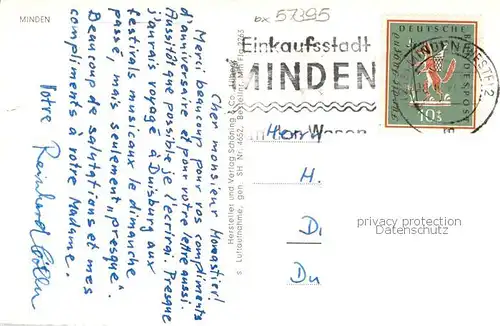 MINDEN
bx 57395
Einkaufsstadt
MINDEN
MINDEN (WESTF) 2
10
Cher monsieur Monastier!
Merci beaucoup pour vos compliments
d'anniversaire et pour votre lettre aussi.
Aussitôt que possible je l'ecrirai. Presque
j'aurais voyagé à Duisburg aux
festivals musicaux le dimanche
passé, mais seulement „presque".
Beaucoup de salutations et mes
compliments à votre Madame.
Votre Reinhard
Hersteller und Verlag Schöning & Co
s Luftaufnahme, gen. SH Nr. 4652, Bestellnr. Min Flg 2265
Herrn
H.
D.
Du
privacy protection
Datenschutz